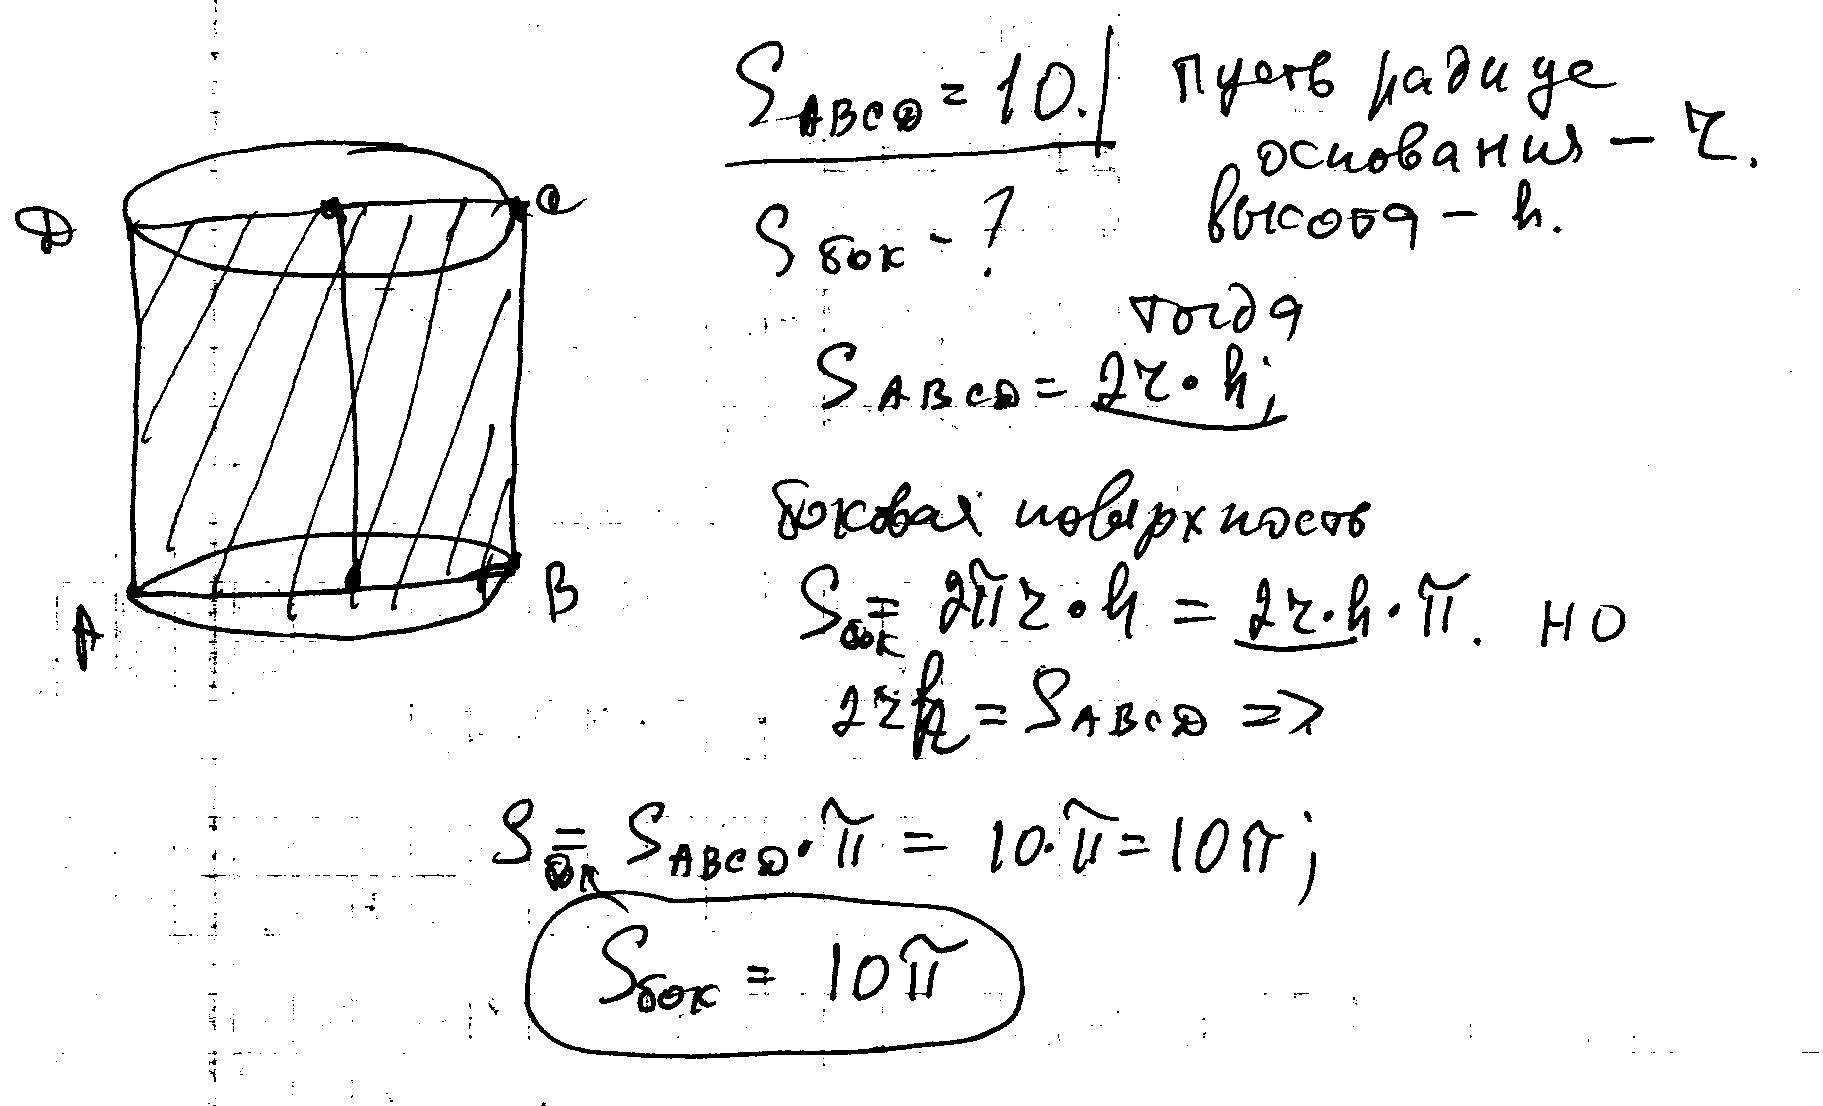 S ABCD = 10.
пусть радиус
основания – r.
высота – h.
S бок – ?
D
C
тогда
S ABCD = 2r · h;
боковая поверхность
A
B
S бок = 2πr · h = 2r · h · π. но
2rh = S ABCD =>
S бок = S ABCD · π = 10 · π = 10π;
S бок = 10π